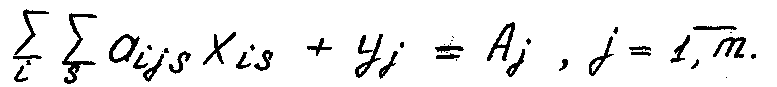 $\sum_{i} \sum_{s} a_{ijs} x_{is} + y_j = A_j , j = \overline{1, m}.$